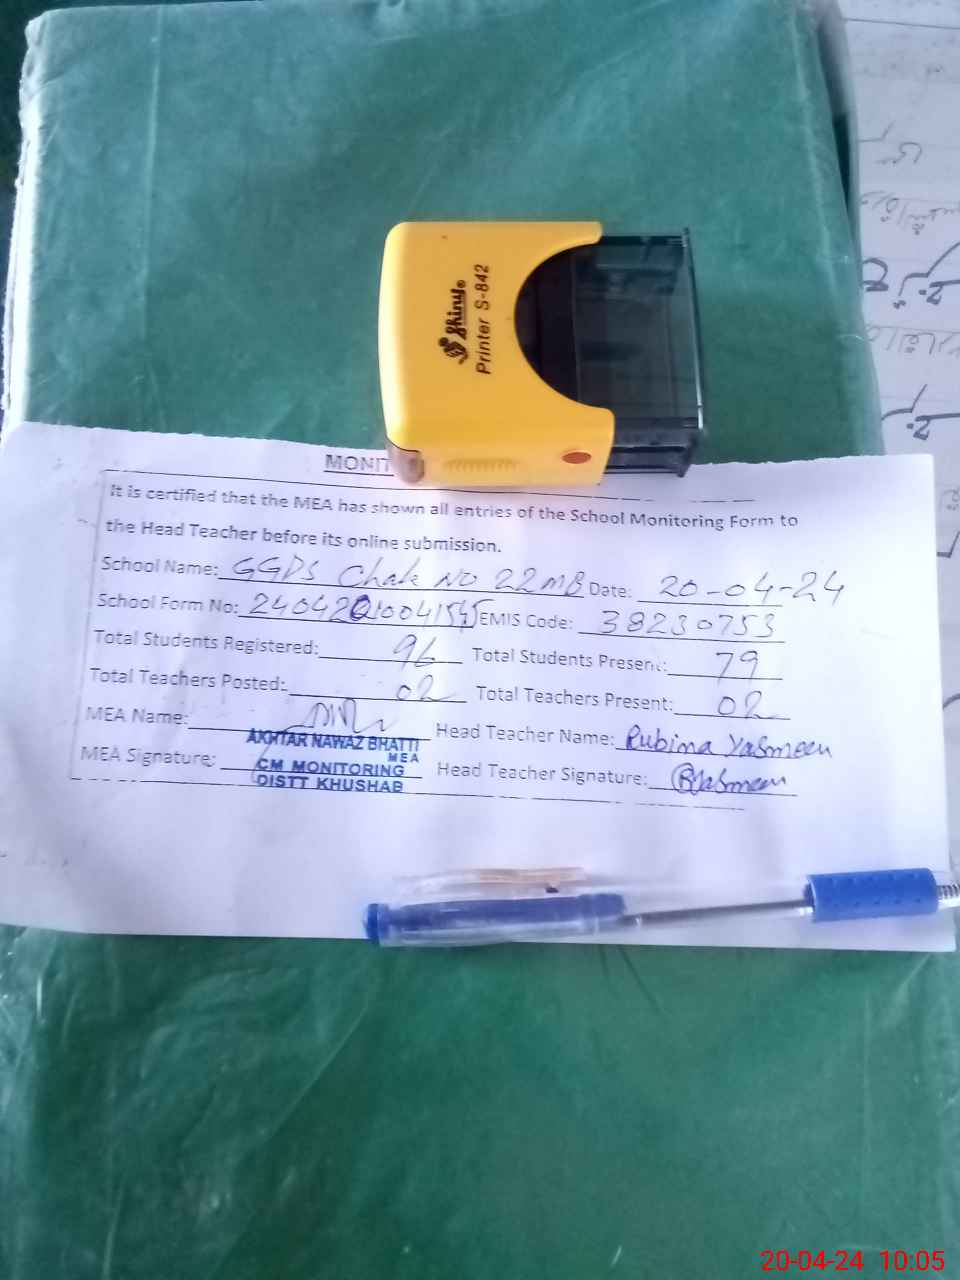 Shiny®
Printer S-842
MONIT
It is certified that the MEA has shown all entries of the School Monitoring Form to
the Head Teacher before its online submission.
School Name: GGPS Chak No 22MB Date: 20-04-24
School Form No: EMIS Code: 38230753
Total Students Registered: 96 Total Students Present: 79
Total Teachers Posted: 02 Total Teachers Present: 02
MEA Name: Head Teacher Name: Rubina Yasmeen
AKHTAR NAWAZ BHATTI
MEA
MEA Signature: CM MONITORING Head Teacher Signature: RYasmeen
DISTT KHUSHAB
20-04-24 10:05